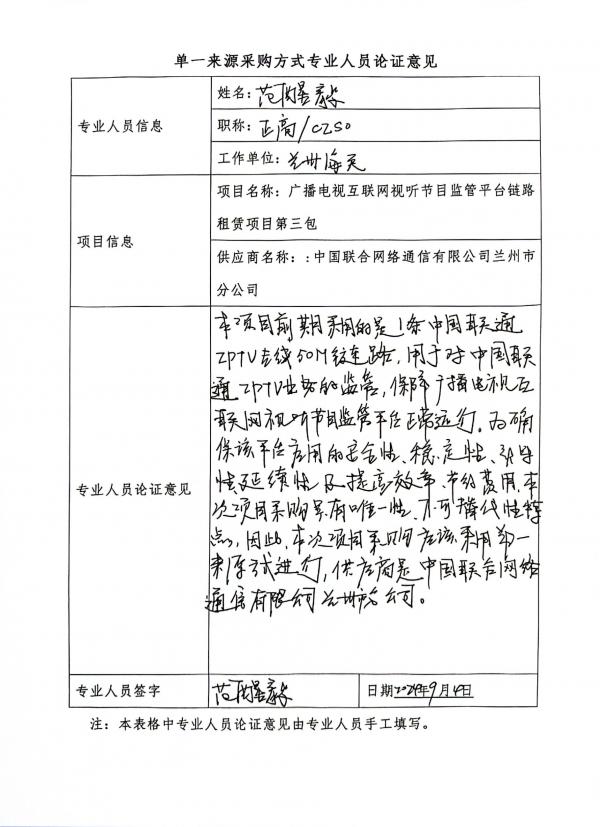 单一来源采购方式专业人员论证意见
专业人员信息
姓名：范
职称：正高/CISO
工作单位：兰州海天
项目信息
项目名称：广播电视互联网视听节目监管平台链路
租赁项目第三包
供应商名称：:中国联合网络通信有限公司兰州市
分公司
专业人员论证意见
本项目前期采用的是1条中国联通
IPTV专线50M链路，用于对中国联
通IPTV业务的监管，保障广播电视互
联网视听节目监管平台正常运行。为确
保该平台应用的安全性、稳定性、
性延续性及提高效率、节约费用，本
次项目采购具有唯一性、不可替代性特
点，因此，本次项目采购应该采用单一
来源式进行，供应商是中国联合网络
通信有限公司兰州市分公司。
专业人员签字
范
日期2024年9月4日
注：本表格中专业人员论证意见由专业人员手工填写。